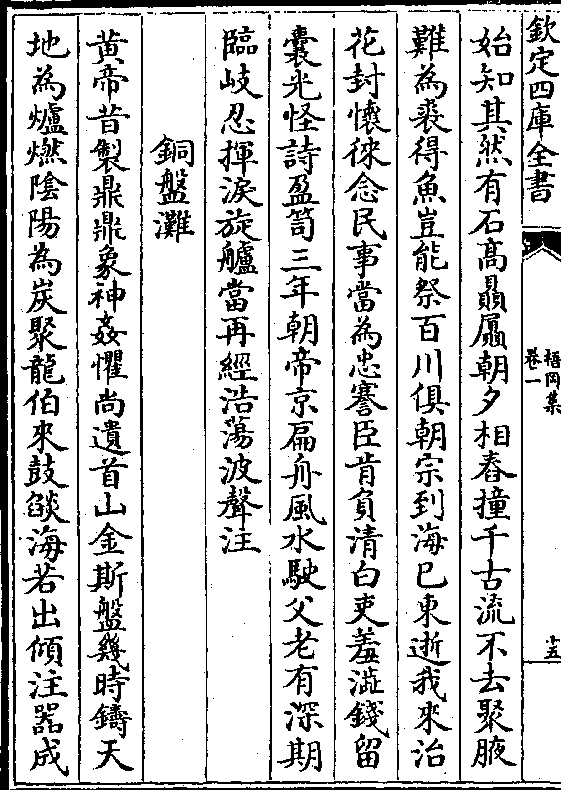 欽定四庫全書
梧岡集
卷一
十五
始知其然有石髙贔屭朝夕相舂撞千古流不去聚腋
難為裘得魚豈能祭百川俱朝宗到海已東逝我來治
花封懷徠念民事當為忠謇臣肯負清白吏羞澁錢留
囊光怪詩盈笥三年朝帝京扁舟風水駛父老有深期
臨岐忍揮淚旋艫當再經浩蕩波聲注
銅盤灘
黄帝昔製鼎鼎象神姦懼尚遺首山金斯盤幾時鑄天
地為爐燃隂陽為炭聚龍伯來鼓燄海若出傾注器成